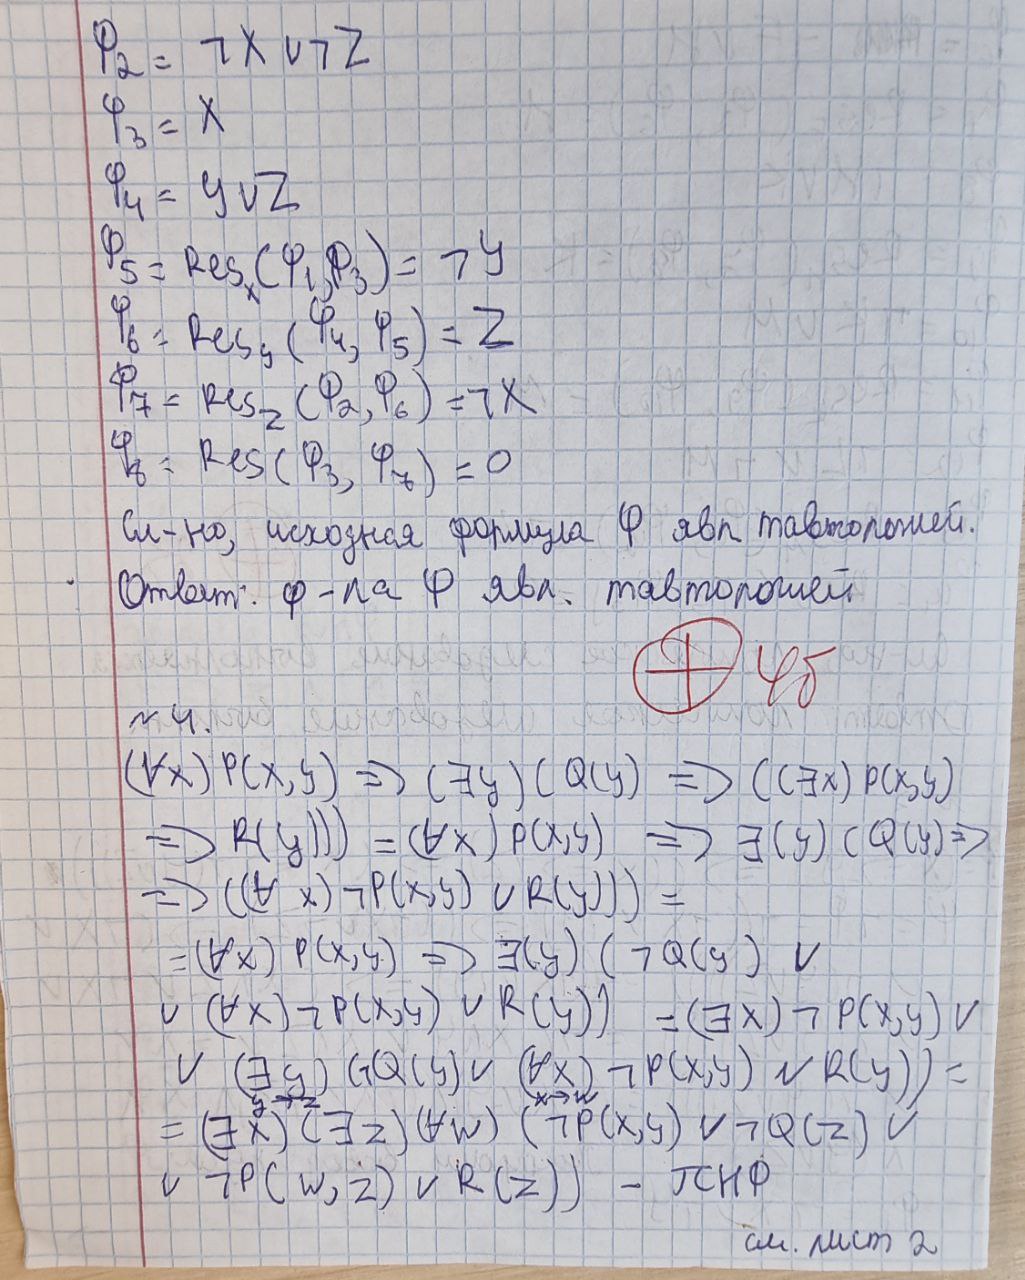 φ₂ = ¬X ∨ ¬Z
φ₃ = X
φ₄ = y ∨ Z
φ₅ = Resₓ(φ₁, φ₃) = ¬y
φ₆ = Res_y(φ₄, φ₅) = Z
φ₇ = Res_z(φ₂, φ₆) = ¬X
φ₈ = Res(φ₃, φ₇) = 0
Сл-но, исходная формула φ явл тавтологией.
Ответ: ф-ла φ явл. тавтологией
⊕ 4б
№4.
(∀x)P(x,y) => (∃y)(Q(y) => ((∃x)P(x,y)
=> R(y))) = (∀x)P(x,y) => ∃(y)(Q(y) =>
=> ((∀x)¬P(x,y) ∨ R(y))) =
= (∀x)P(x,y) => ∃(y)(¬Q(y) ∨
∨ (∀x)¬P(x,y) ∨ R(y)) = (∃x)¬P(x,y) ∨
∨ (∃y)(¬Q(y) ∨ (∀x)¬P(x,y) ∨ R(y)) =
y→z x→w
= (∃x)(∃z)(∀w)(¬P(x,y) ∨ ¬Q(z) ∨
∨ ¬P(w,z) ∨ R(z)) – ПНФ
см. лист 2